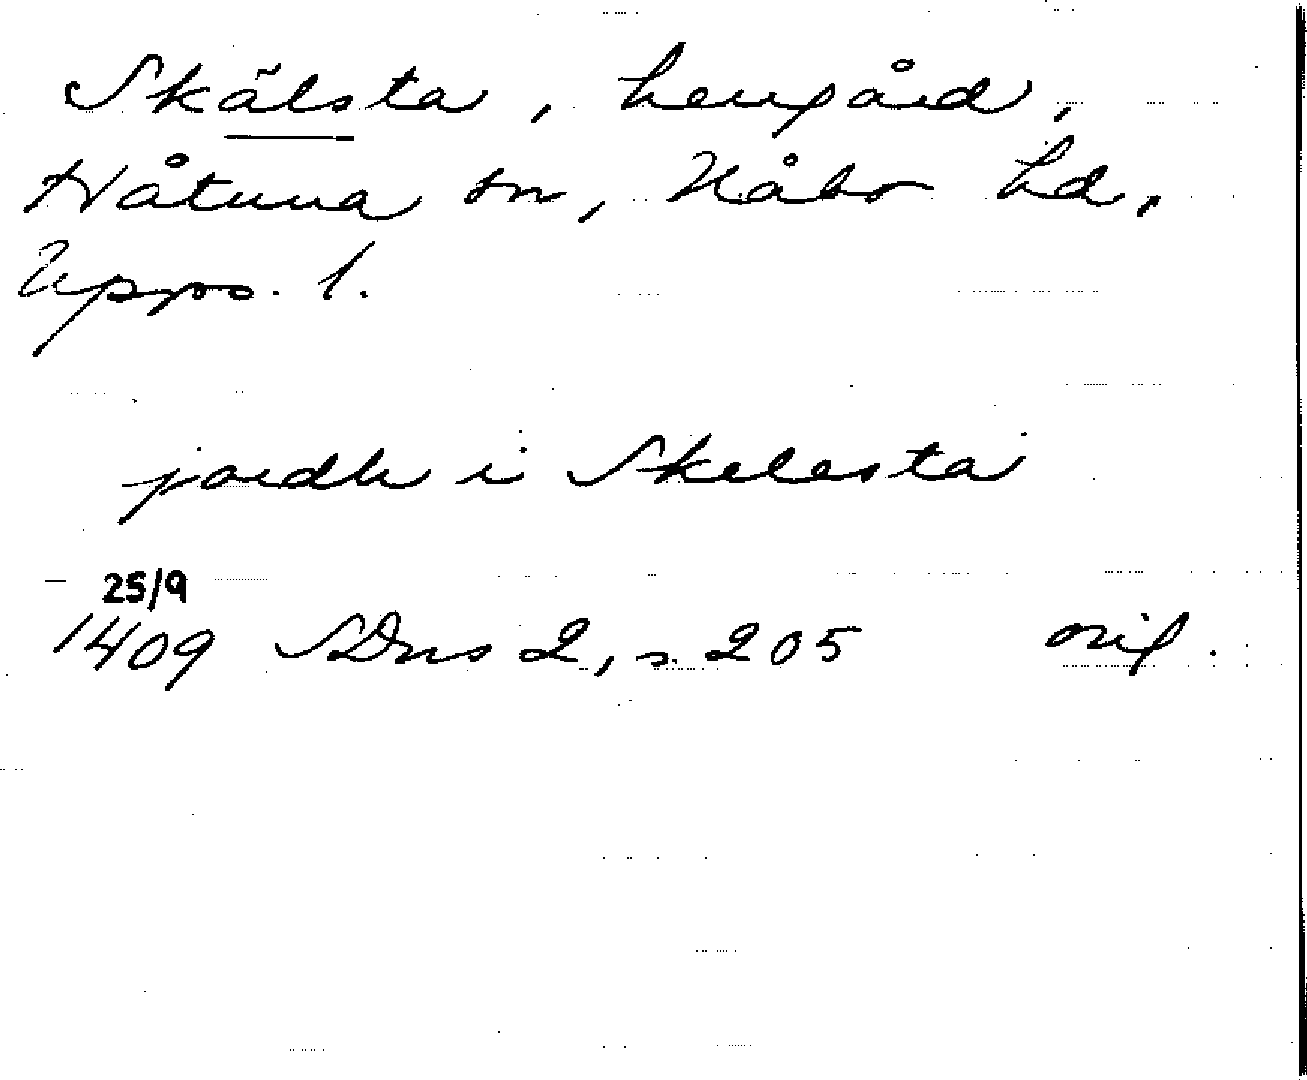 Skälsta, herrgård,
Håtuna sn, Håbo hd,
Upps. l.
jordh i Skelesta
25/9
1409 SDns 2, s. 205 orig.